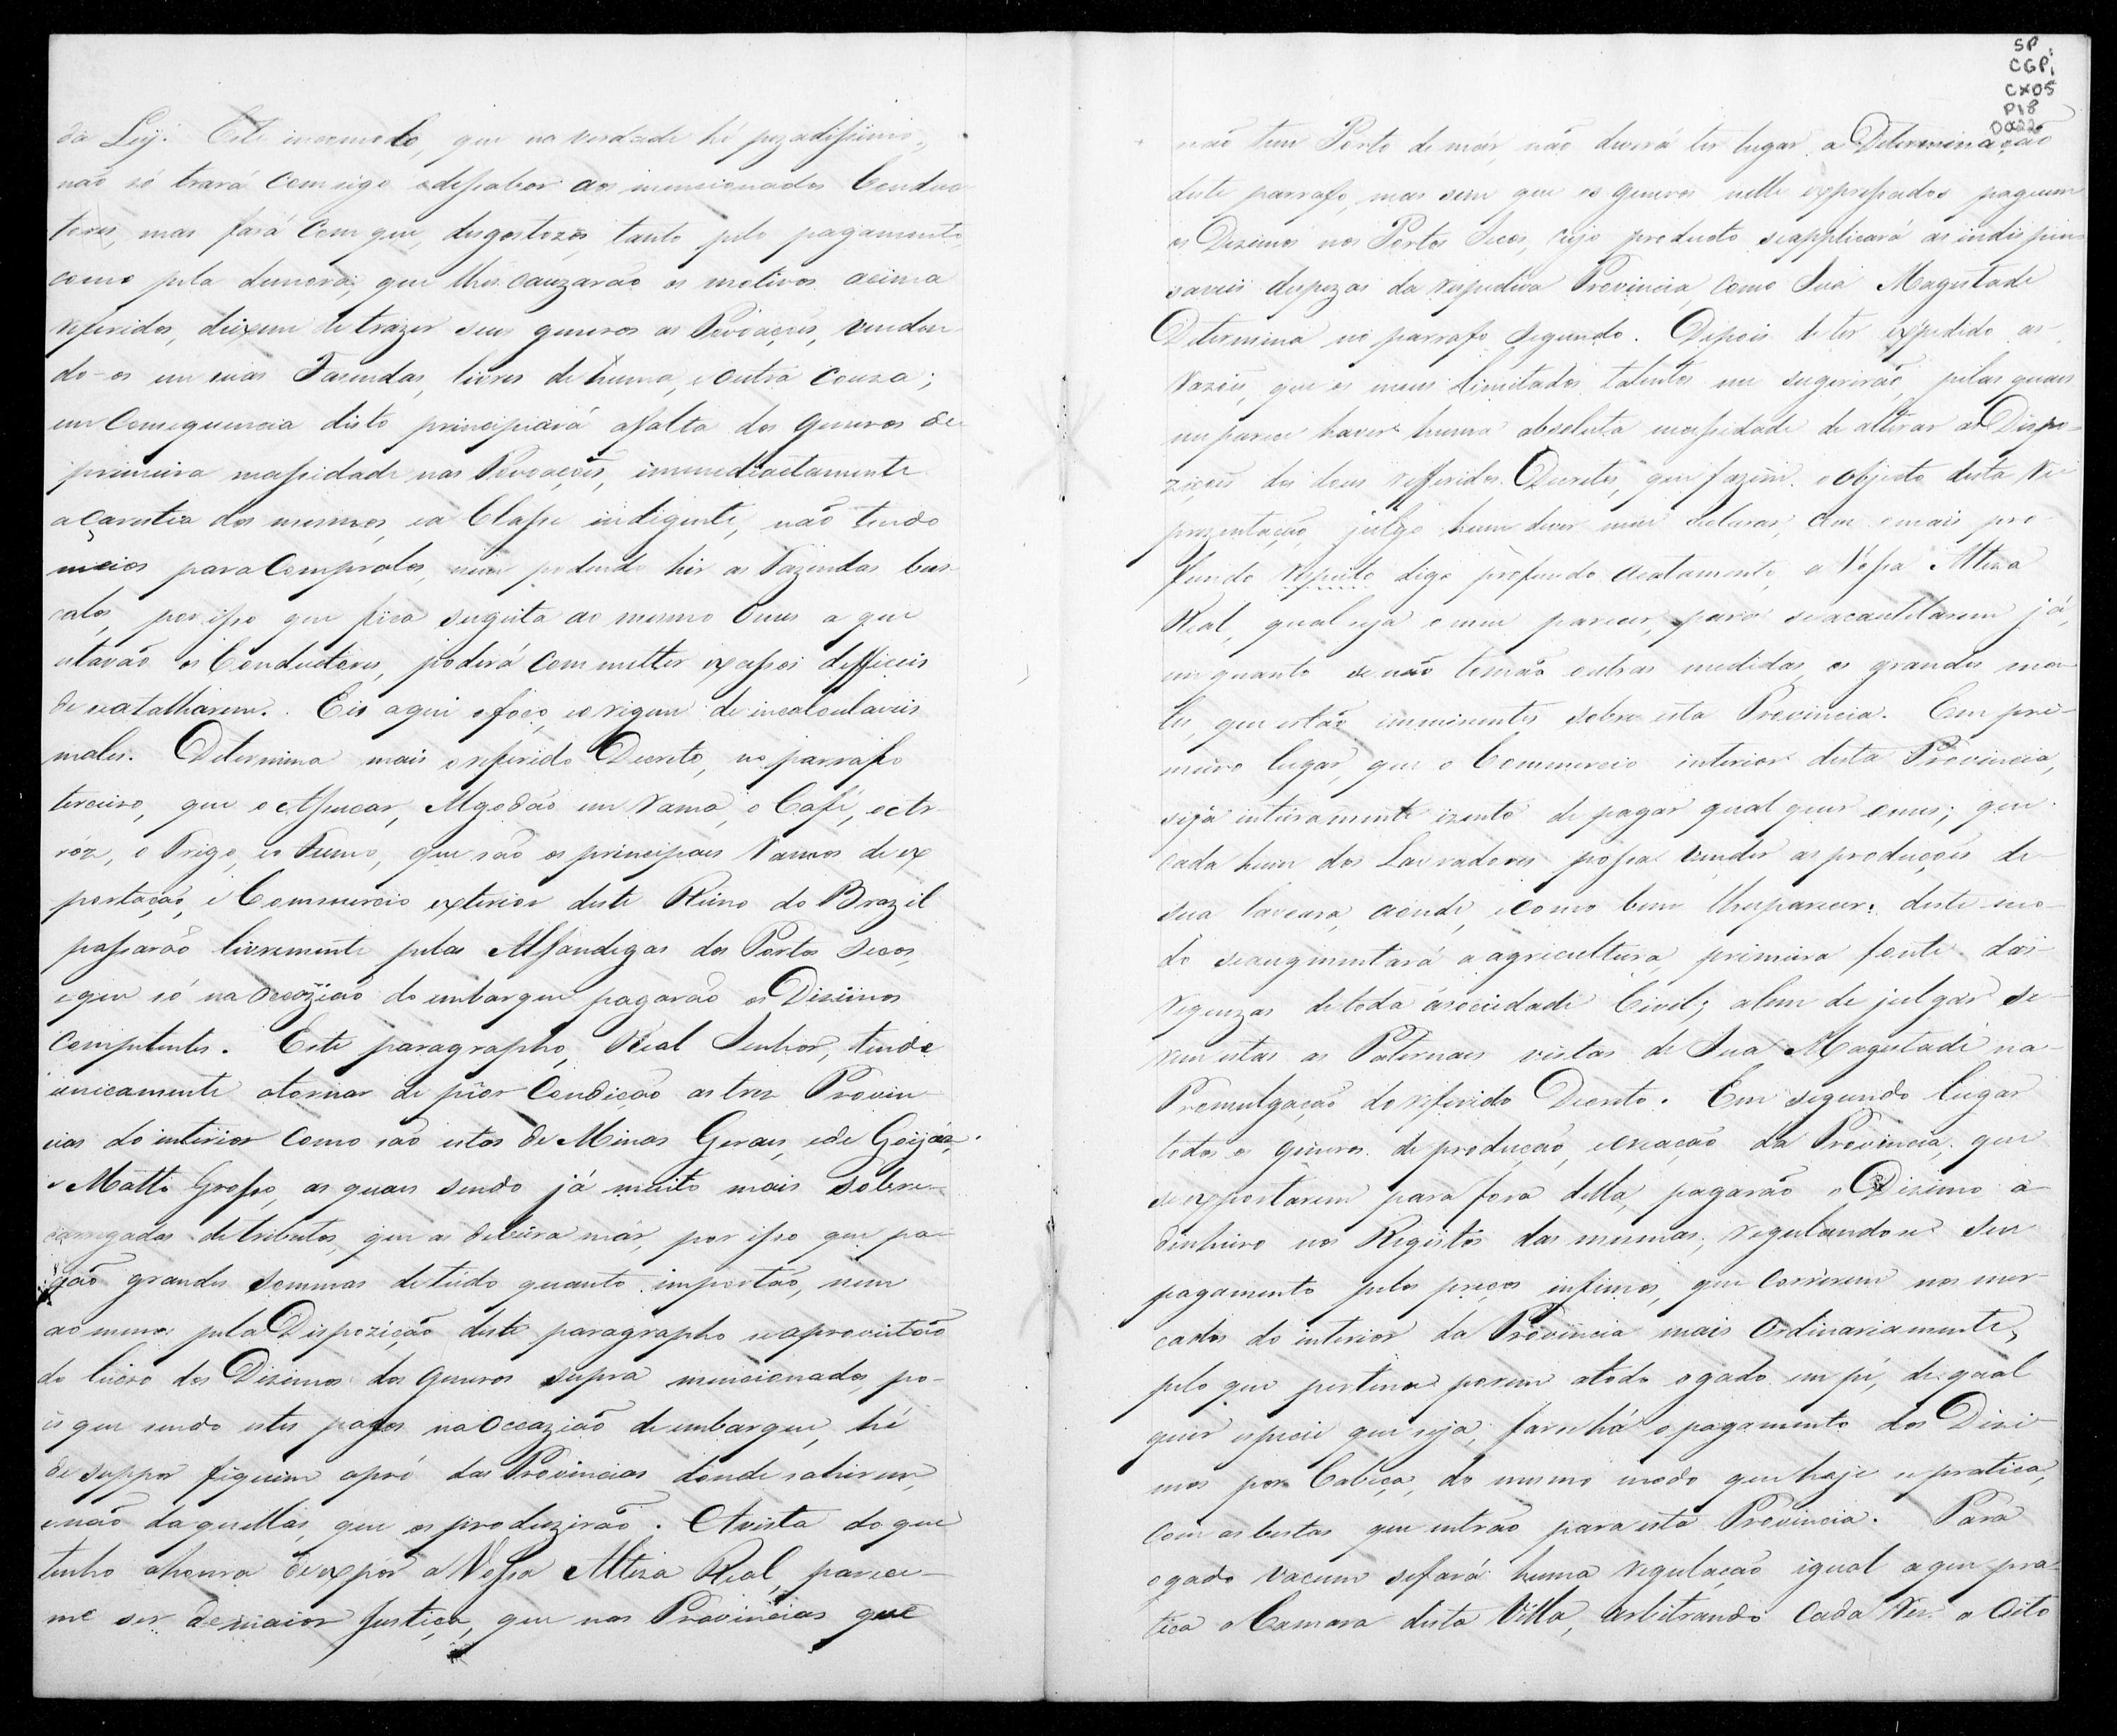 SP
CGPi
CX05
P18
D022
da Ley. Este incomodo, que na verdade hé pezadissimo,
não só trará comsigo odessabor aos mencionados Conduc
tores, mas fará com que, desgostozos tanto pelo pagamento
como pela demora, que lhes cauzarão os motivos acima
referidos, deixem de trazer seus generos as Povoações, venden
do-os em suas Fasendas, livres de huma, e outra couza;
em consequencia disto principiará afalta dos generos de
primeira necessidade nas Povoações, immediactamente
a carestia dos mesmos, ea Classe indigente, não tendo
meios para compralos, nem podendo hir as Fazendas bus-
calos, por isso que fica sugeita ao mesmo Onus a que
estavão os Conductores, poderá commetter excessos difficeis
de seatalharem. Eis aqui ofoco, eorigem de incalculaveis
males. Determina mais oreferido Decreto, no parrafo
terceiro, que o Assucar, Algodão em rama, o Café, o Ar-
róz, o Trigo, eo Fumo, que são os principaes ramos de ex
portação, e Commercio exterior deste Reino do Brazil
passarão livremente pelas Alfandegas dos Portos Secos,
eque só na occazião do embarque pagarão os Disimos
competentes. Este paragrapho, Real Senhor, tende
unicamente atornar de piór condição as tres Provin
cias do interior como são estas de Minas Geraes, ede Goijáz,
e Matto Grosso, as quaes sendo já muito mais sobre-
carregadas de tributos, que as debeira már, por isso que pa-
gão grandes sommas detudo quanto importão, nem
ao menos pela Dispozição deste paragrapho seaproveitão
do lucro dos Disimos dos generos supra mencionados, po-
is que sendo estes pagos na Occazião de embarque, hé
de suppor fiquem apró das Provincias donde sahirem,
enão daquellas, que os produzirão. Avista do que
tenho ahonra de expôr a Vossa Alteza Real, parece-
me ser de maior Justiça, que nas Provincias que
não tem Porto de már, não deverá ter lugar a Determinação
deste parrafo, mas sem que os generos nelle expressados paguem
os Disimos nos Portos Secos, cujo producto seapplicará as indispen
saveis despezas da respectiva Provincia, como Sua Magestade
Determina no parrafo segundo. Depois de ter expedido as
razões, que os meus limitados talentos me sugerirão, pelas quaes
me parece haver huma absoluta necessidade de alterar as Dispo-
zições dos dous refferidos Decretos, que fazem o objecto desta Re
prezentação, julgo hum dever meu declarar, com omais pro-
fundo respeito digo profundo acatamento, a Vossa Alteza
Real, qual seja o meu parecer, para seacautelarem já,
em quanto se não tomão outras medidas, os grandes ma-
les, que estão imminentes sobre esta Provincia. Em pri-
meiro lugar, que o Commercio interior desta Provincia,
seja inteiramente izento de pagar qualquer onus; que
cada hum dos Lavradores possa vender as producções de
sua lavoura, aonde, ecomo bem lhesparecer: deste mo-
do seaugmentará aagricultura, primeira fonte das
riquezas detoda asociedade Civil; alem de julgar se-
rem estas as Paternaes vistas de Sua Magestade na
Promulgação do referido Decreto. Em segundo lugar
todos os generos de producção, ecreação da Provincia, que
seexportarem para fora della, pagarão o Disimo a
dinheiro nos Registos das mesmas, regulandose seu
pagamento pelos preços infimos, que correrem nos mer-
cados do interior da Provincia mais ordinariamente,
pelo que pertence porem atodo ogado em pé, de qual
quer especie que seja, farsehá opagamento dos Disi-
mos por Cabeça, do mesmo modo que hoje sepratica,
com as bestas que entrão para esta Provincia. Para
ogado vacum sefará huma regulação igual aque pra-
tica a Camara desta Villa, arbitrando cada rez a oito